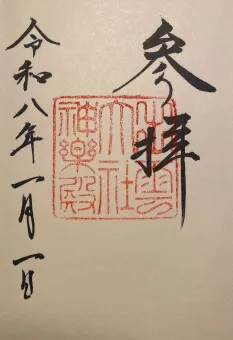 参拝
出雲
大社
神樂殿
令和八年一月一日